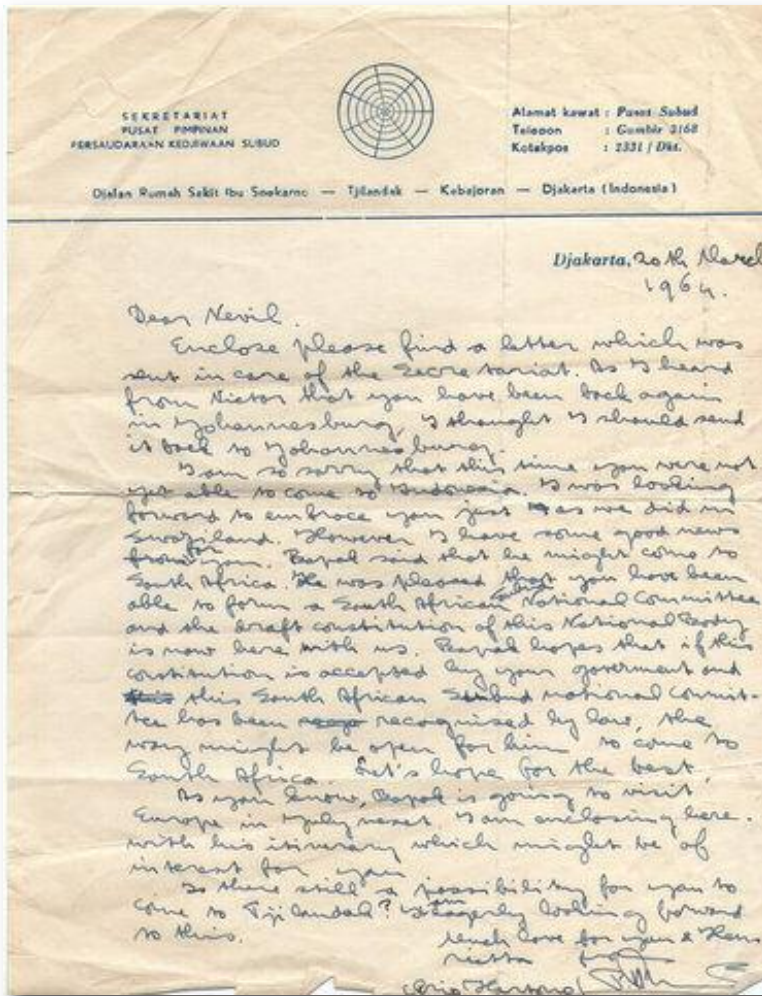 SEKRETARIAT
PUSAT PIMPINAN
PERSAUDARAAN KEDJIWAAN SUBUD
Alamat kawat : Pusat Subud
Telepon : Gambir 3168
Kotakpos : 2331 / Dkt.
Djalan Rumah Sakit Ibu Soekarno — Tjilandak — Kebajoran — Djakarta (Indonesia)
Djakarta, 20th March
1964.
Dear Nevil.
Enclose please find a letter which was
sent in care of the Secretariat. As I heard
from Victor that you have been back again
in Yohannesburg, I thought I should send
it back to Yohannesburg.
I am so sorry that this time you were not
yet able to come to Indonesia. I was looking
forward to embrace you just as we did in
Swaziland. However I have some good news
for you. Bapak said that he might come to
South Africa. He was pleased that you have been
able to form a South African Subud National Committee
and the draft constitution of this National Body
is now here with us. Bapak hopes that if this
constitution is accepted by your goverment and
this this South African Subud national Commit-
tee has been recognised by law, the
way might be open for him to come to
South Africa. Let's hope for the best.
As you know, Bapak is going to visit
Europe in Yuly next. I am enclosing here-
with his itinerary which might be of
interest for you
Is there still a possibility for you to
come to Tjilandak? I am eagerly looking forward
to this.
Much love for you &
from
Hartono